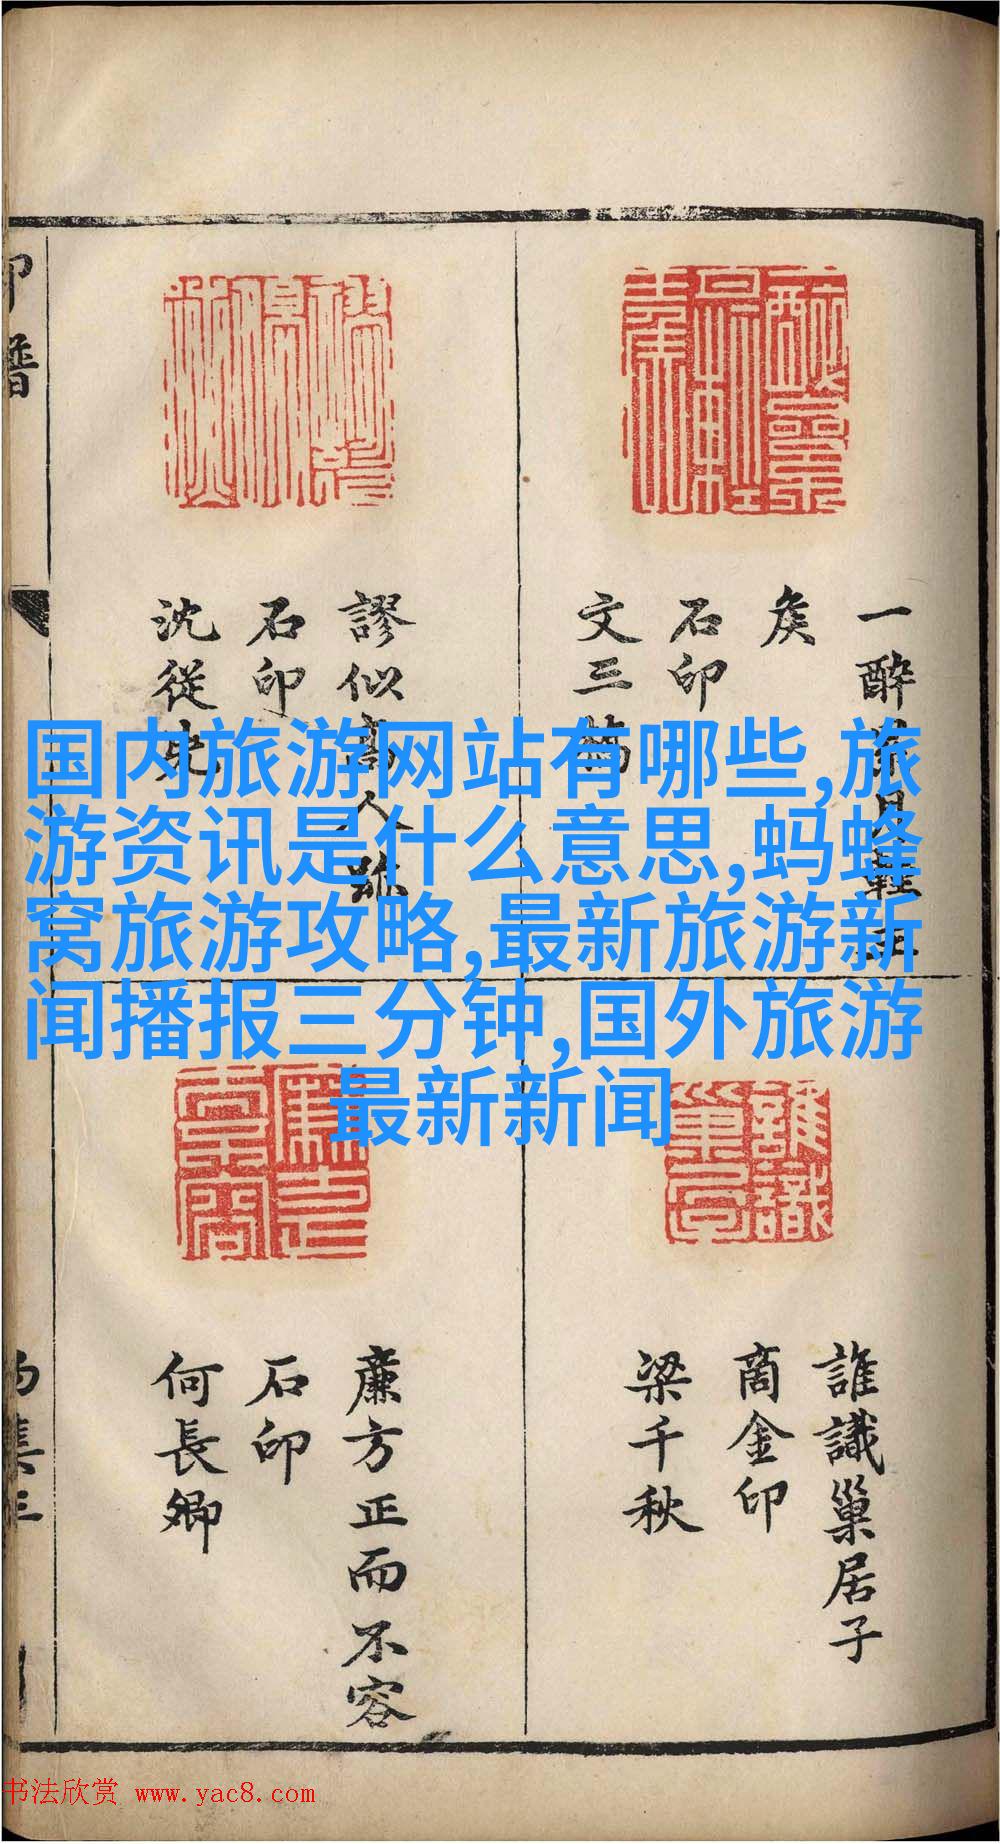 一醉累月輕王
矦
石印
文三橋
謬似高人跡
石印
沈從先
国内旅游网站有哪些,旅
游资讯是什么意思,蚂蜂
窝旅游攻略,最新旅游新
闻播报三分钟,国外旅游
最新新闻
誰識巢居子
商金印
梁千秋
廉方正而不容
石印
何長卿
印譜
书法欣赏 www.yac8.com